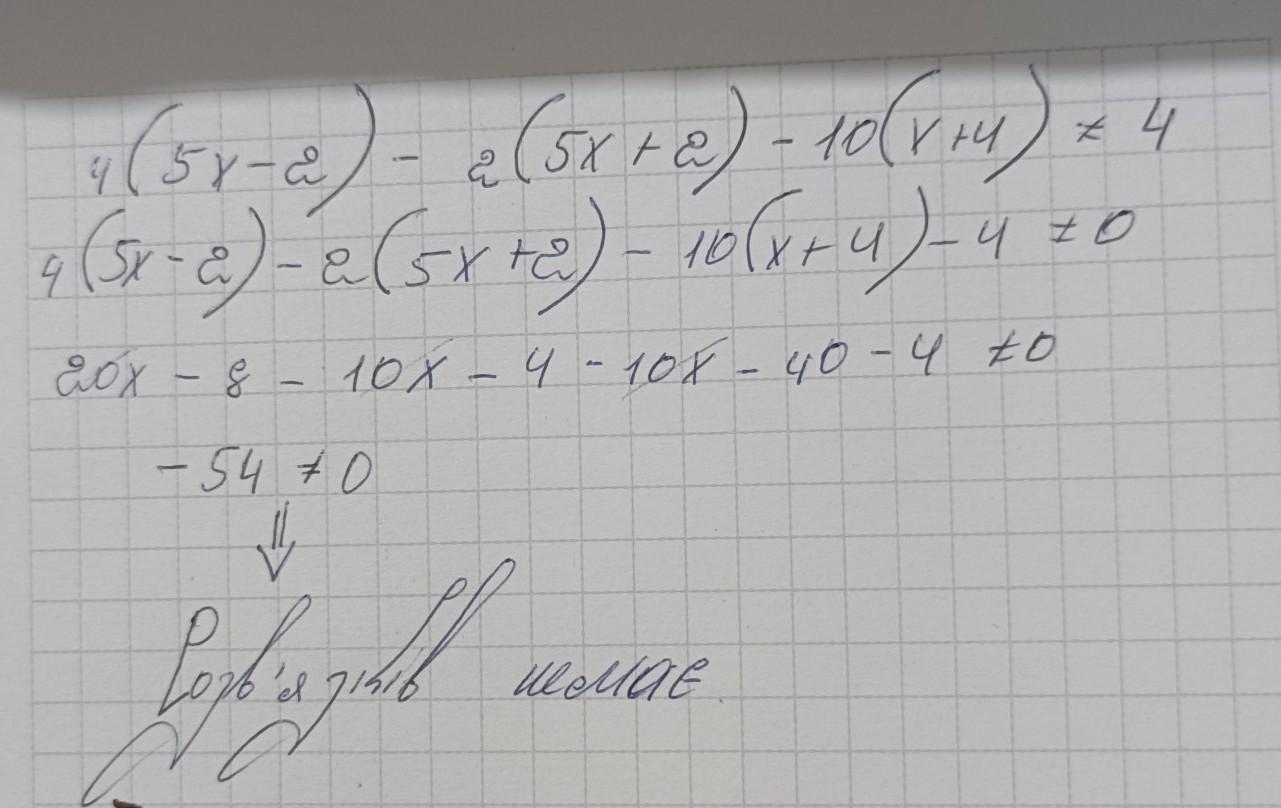 4(5x-2) - 2(5x+2) - 10(x+4) ≠ 4
4(5x-2) - 2(5x+2) - 10(x+4) - 4 ≠ 0
20x - 8 - 10x - 4 - 10x - 40 - 4 ≠ 0
-54 ≠ 0
⇓
Розв'язків немає.